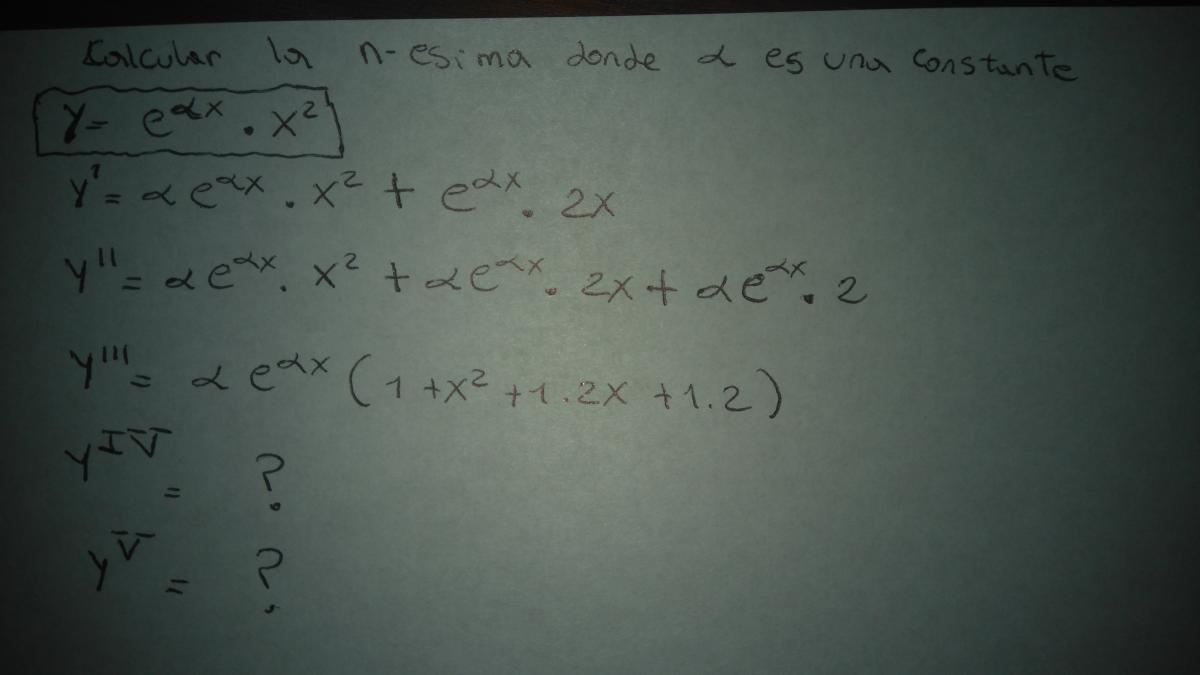 Calcular la n-esima donde α es una constante
y = e^αx · x²
y' = αe^αx · x² + e^αx · 2x
y'' = αe^αx · x² + αe^αx · 2x + αe^αx · 2
y''' = αe^αx (1+x² +1.2x +1.2)
y^IV = ?
y^V = ?